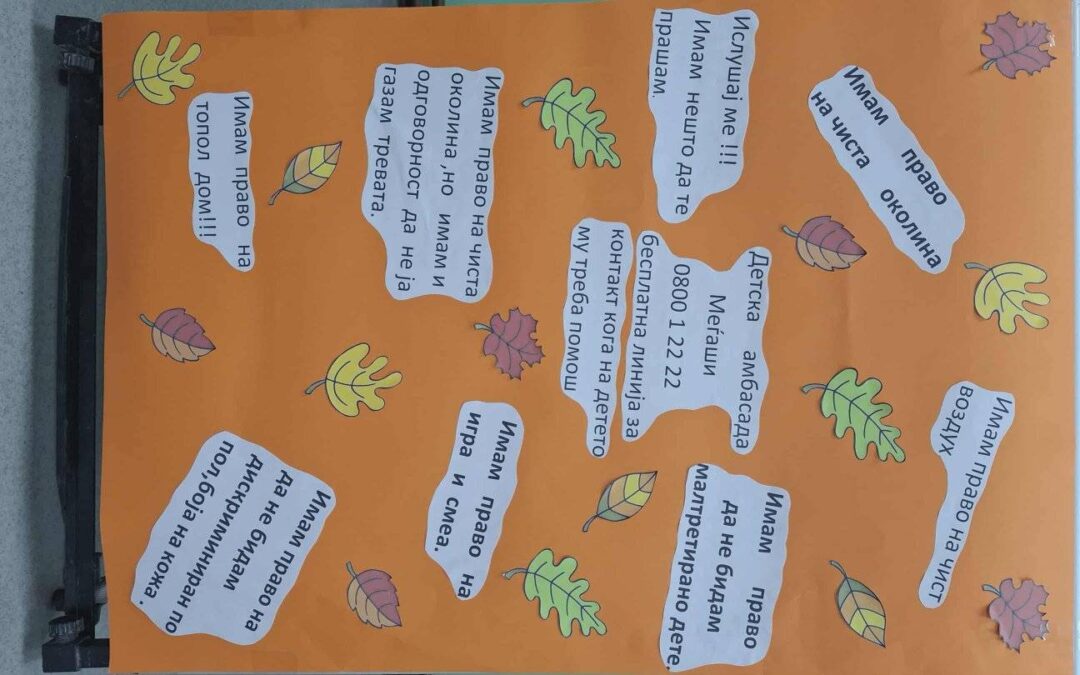 Имам право
на чиста околина
Имам право на чист
воздух
Ислушај ме !!!
Имам нешто да те
прашам.
Детска амбасада
Меѓаши
0800 1 22 22
бесплатна линија за
контакт кога на детето
му треба помош
Имам право
да не бидам
малтретирано дете.
Имам право на чиста
околина ,но имам и
одговорност да не ја
газам тревата.
Имам право на
игра и смеа.
Имам право на
топол дом!!!
Имам право на
да не бидам
дискримининиран по
пол,боја на кожа .